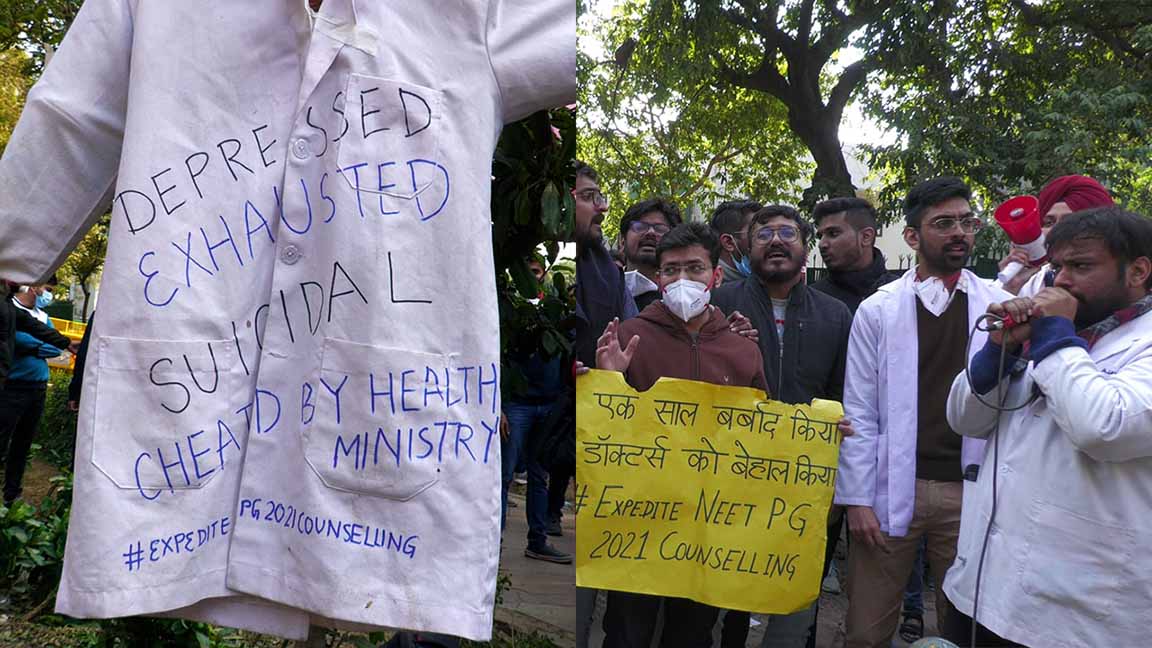 DEPRESSED
EXHAUSTED
SUICIDAL
CHEATD BY HEALTH
MINISTRY
#EXPEDITE PG 2021 COUNSELLING
एक साल बर्बाद किया
डॉक्टर्स को बेहाल किया
# EXPEDITE NEET PG
2021 COUNSELLING